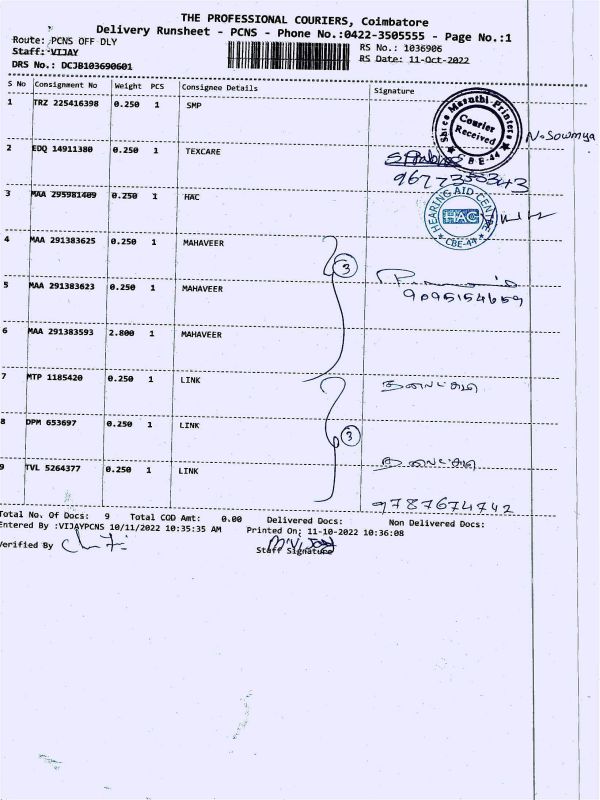 THE PROFESSIONAL COURIERS, Coimbatore
Delivery Runsheet - PCNS - Phone No.:0422-3505555 - Page No.:1
Route: PCNS OFF DLY
RS No.: 1036906
Staff: VIJAY
RS Date: 11-Oct-2022
DRS No.: DCJB103690601
S No Consignment No Weight PCS Consignee Details Signature
1 TRZ 225416398 0.250 1 SMP
Shree Maruthi Printers
Courier Received
CBE-44
N.Sowmya
2 EDQ 14911380 0.250 1 TEXCARE
9677355343
3 MAA 295981409 0.250 1 HAC
HEARING AID CENTRE
HAC
CBE-44
4 MAA 291383625 0.250 1 MAHAVEER
3
5 MAA 291383623 0.250 1 MAHAVEER
9095154659
6 MAA 291383593 2.800 1 MAHAVEER
7 MTP 1185420 0.250 1 LINK
8 DPM 653697 0.250 1 LINK
3
9 TVL 5264377 0.250 1 LINK
9787674742
Total No. Of Docs: 9 Total COD Amt: 0.00 Delivered Docs: Non Delivered Docs:
Entered By :VIJAYPCNS 10/11/2022 10:35:35 AM Printed On: 11-10-2022 10:36:08
Verified By
M.Vijay
Staff Signature